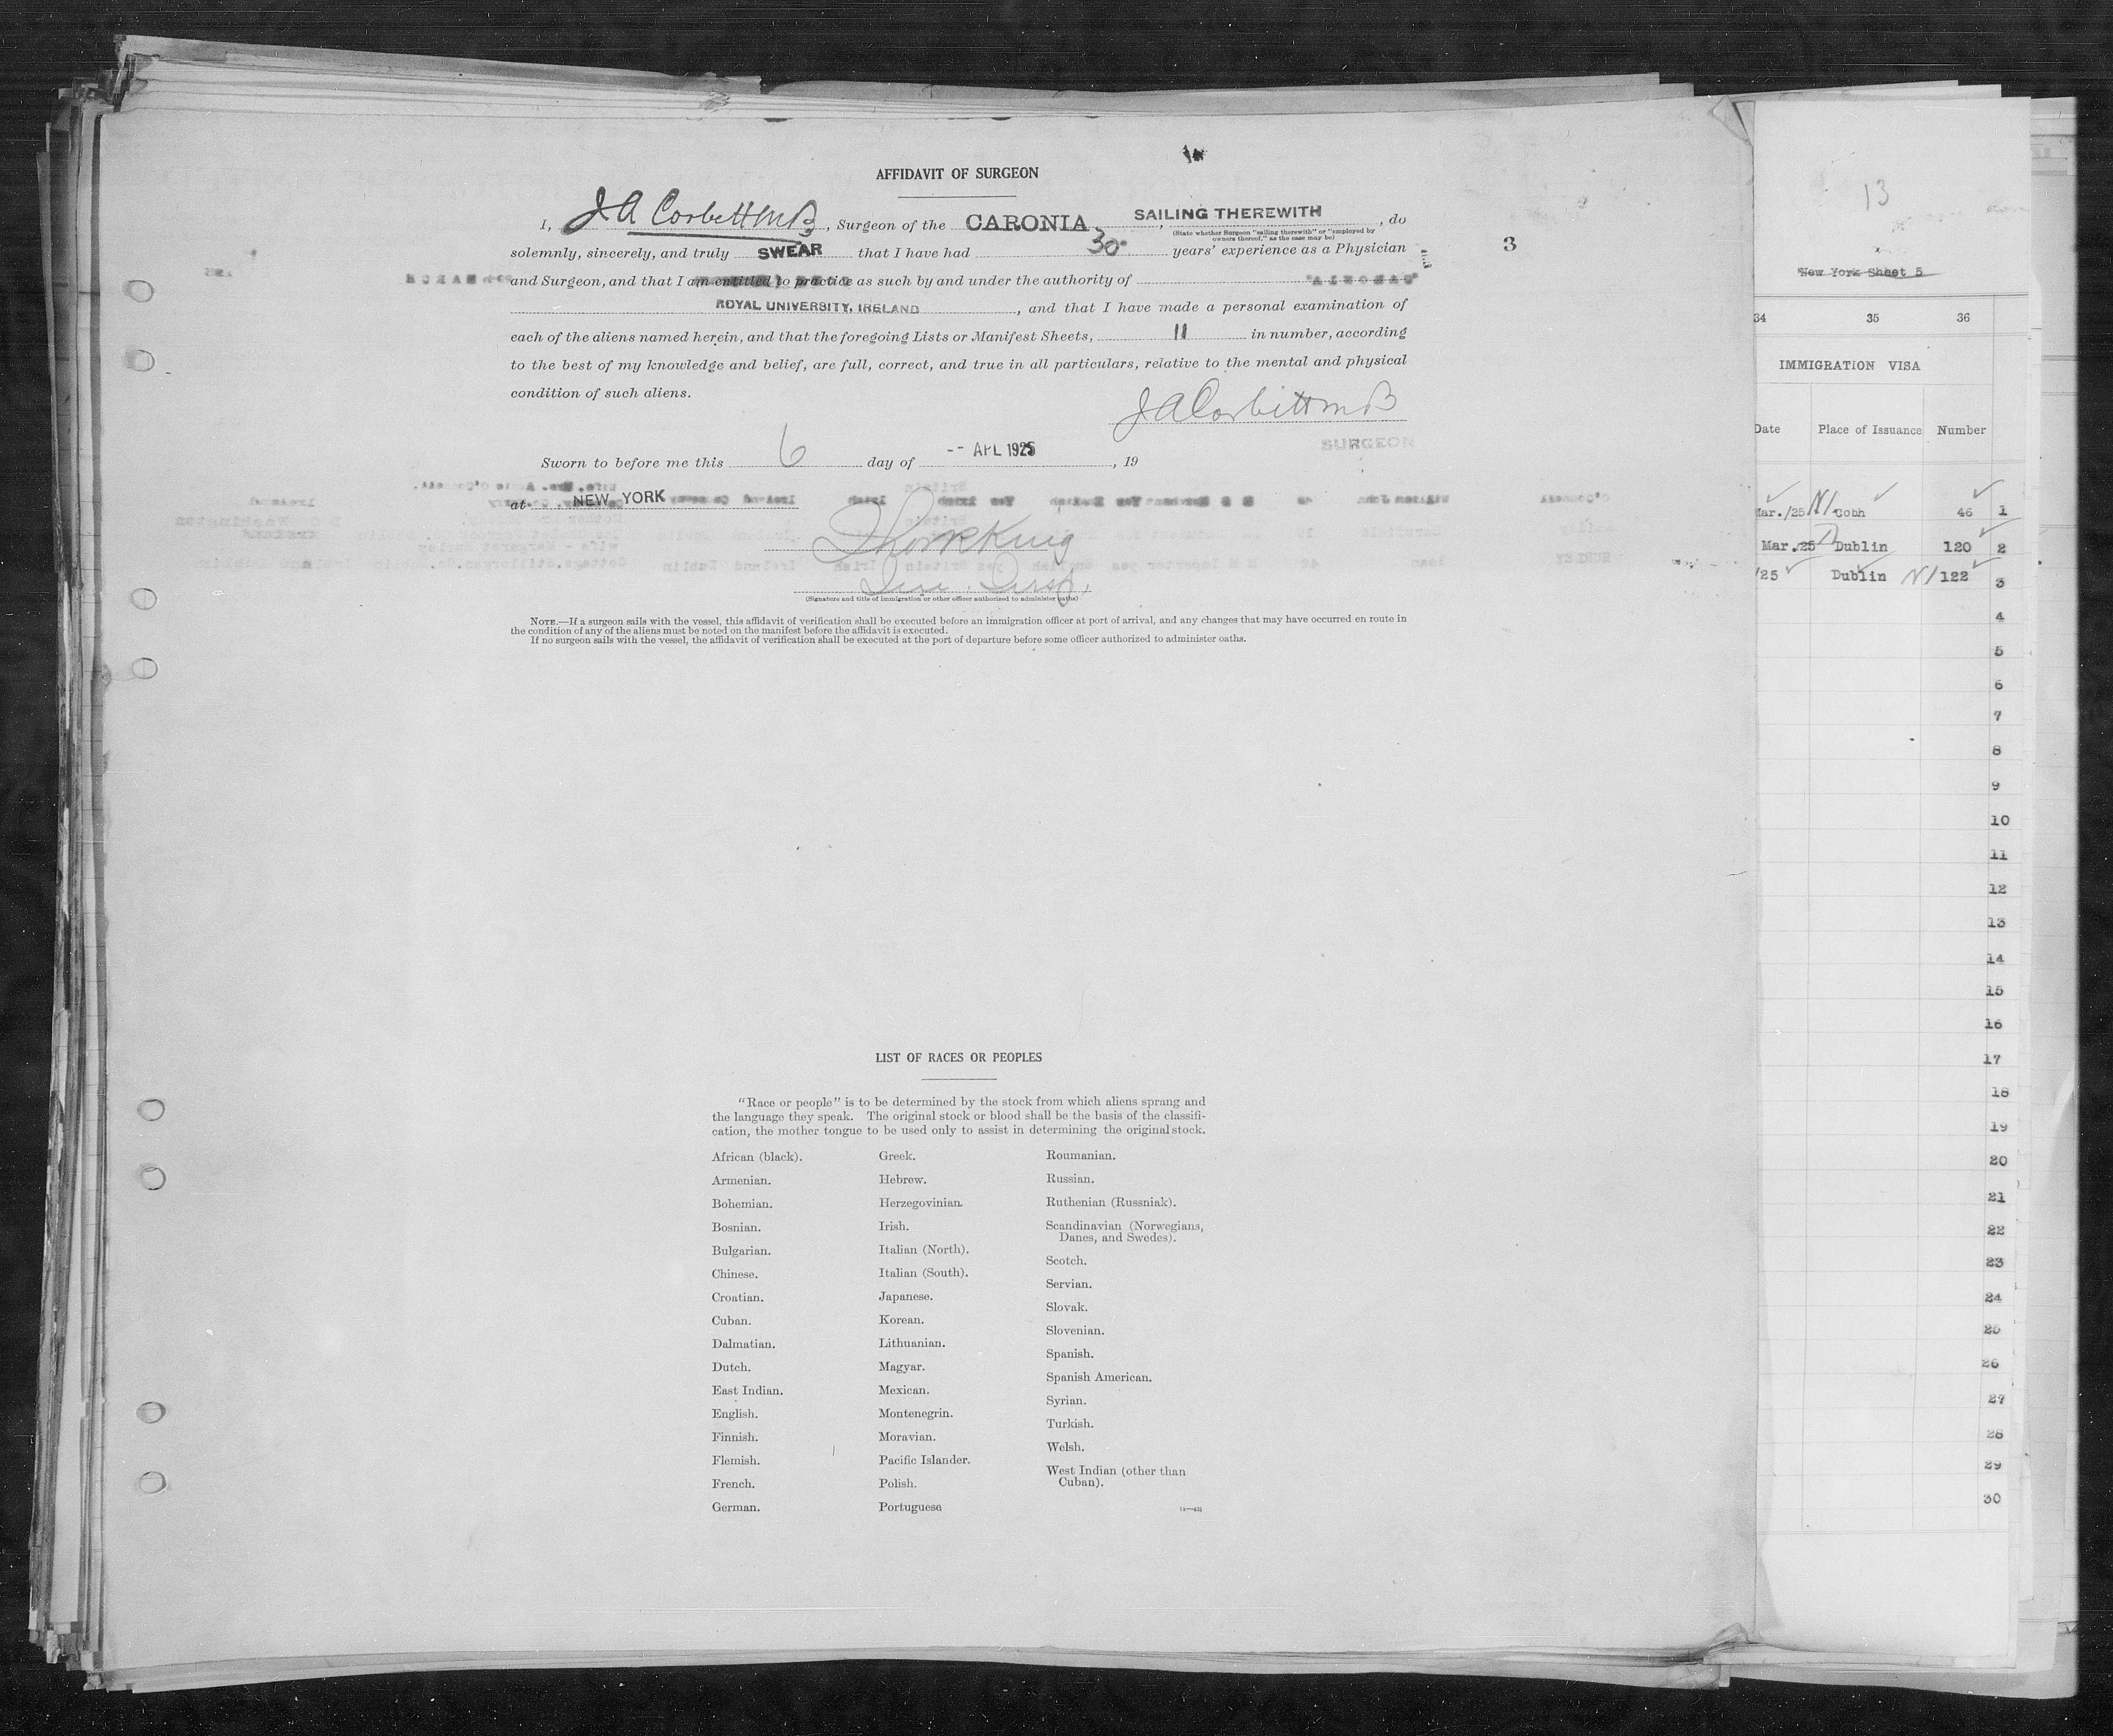 AFFIDAVIT OF SURGEON
I, J A Corbett M B, Surgeon of the CARONIA, SAILING THEREWITH, do
(State whether Surgeon "sailing therewith" or "employed by owners thereof," as the case may be)
solemnly, sincerely, and truly SWEAR that I have had 30 years' experience as a Physician
3
and Surgeon, and that I am entitled to practice as such by and under the authority of
ROYAL UNIVERSITY, IRELAND, and that I have made a personal examination of
each of the aliens named herein, and that the foregoing Lists or Manifest Sheets, 11 in number, according
to the best of my knowledge and belief, are full, correct, and true in all particulars, relative to the mental and physical
condition of such aliens.
J A Corbett M B
SURGEON
Sworn to before me this 6 day of APL 1925, 19
at NEW YORK
King
(Signature and title of immigration or other officer authorized to administer oaths)
NOTE.—If a surgeon sails with the vessel, this affidavit of verification shall be executed before an immigration officer at port of arrival, and any changes that may have occurred en route in
the condition of any of the aliens must be noted on the manifest before the affidavit is executed.
If no surgeon sails with the vessel, the affidavit of verification shall be executed at the port of departure before some officer authorized to administer oaths.
LIST OF RACES OR PEOPLES
"Race or people" is to be determined by the stock from which aliens sprang and
the language they speak. The original stock or blood shall be the basis of the classifi-
cation, the mother tongue to be used only to assist in determining the original stock.
African (black).
Armenian.
Bohemian.
Bosnian.
Bulgarian.
Chinese.
Croatian.
Cuban.
Dalmatian.
Dutch.
East Indian.
English.
Finnish.
Flemish.
French.
German.
Greek.
Hebrew.
Herzegovinian.
Irish.
Italian (North).
Italian (South).
Japanese.
Korean.
Lithuanian.
Magyar.
Mexican.
Montenegrin.
Moravian.
Pacific Islander.
Polish.
Portuguese
Roumanian.
Russian.
Ruthenian (Russniak).
Scandinavian (Norwegians,
Danes, and Swedes).
Scotch.
Servian.
Slovak.
Slovenian.
Spanish.
Spanish American.
Syrian.
Turkish.
Welsh.
West Indian (other than
Cuban).
13
New York Sheet 5
34 35 36
IMMIGRATION VISA
Date Place of Issuance Number
Mar./25 N/ Cobh 46 1
Mar.25 D Dublin 120 2
/25 Dublin N/ 122 3
4
5
6
7
8
9
10
11
12
13
14
15
16
17
18
19
20
21
22
23
24
25
26
27
28
29
30